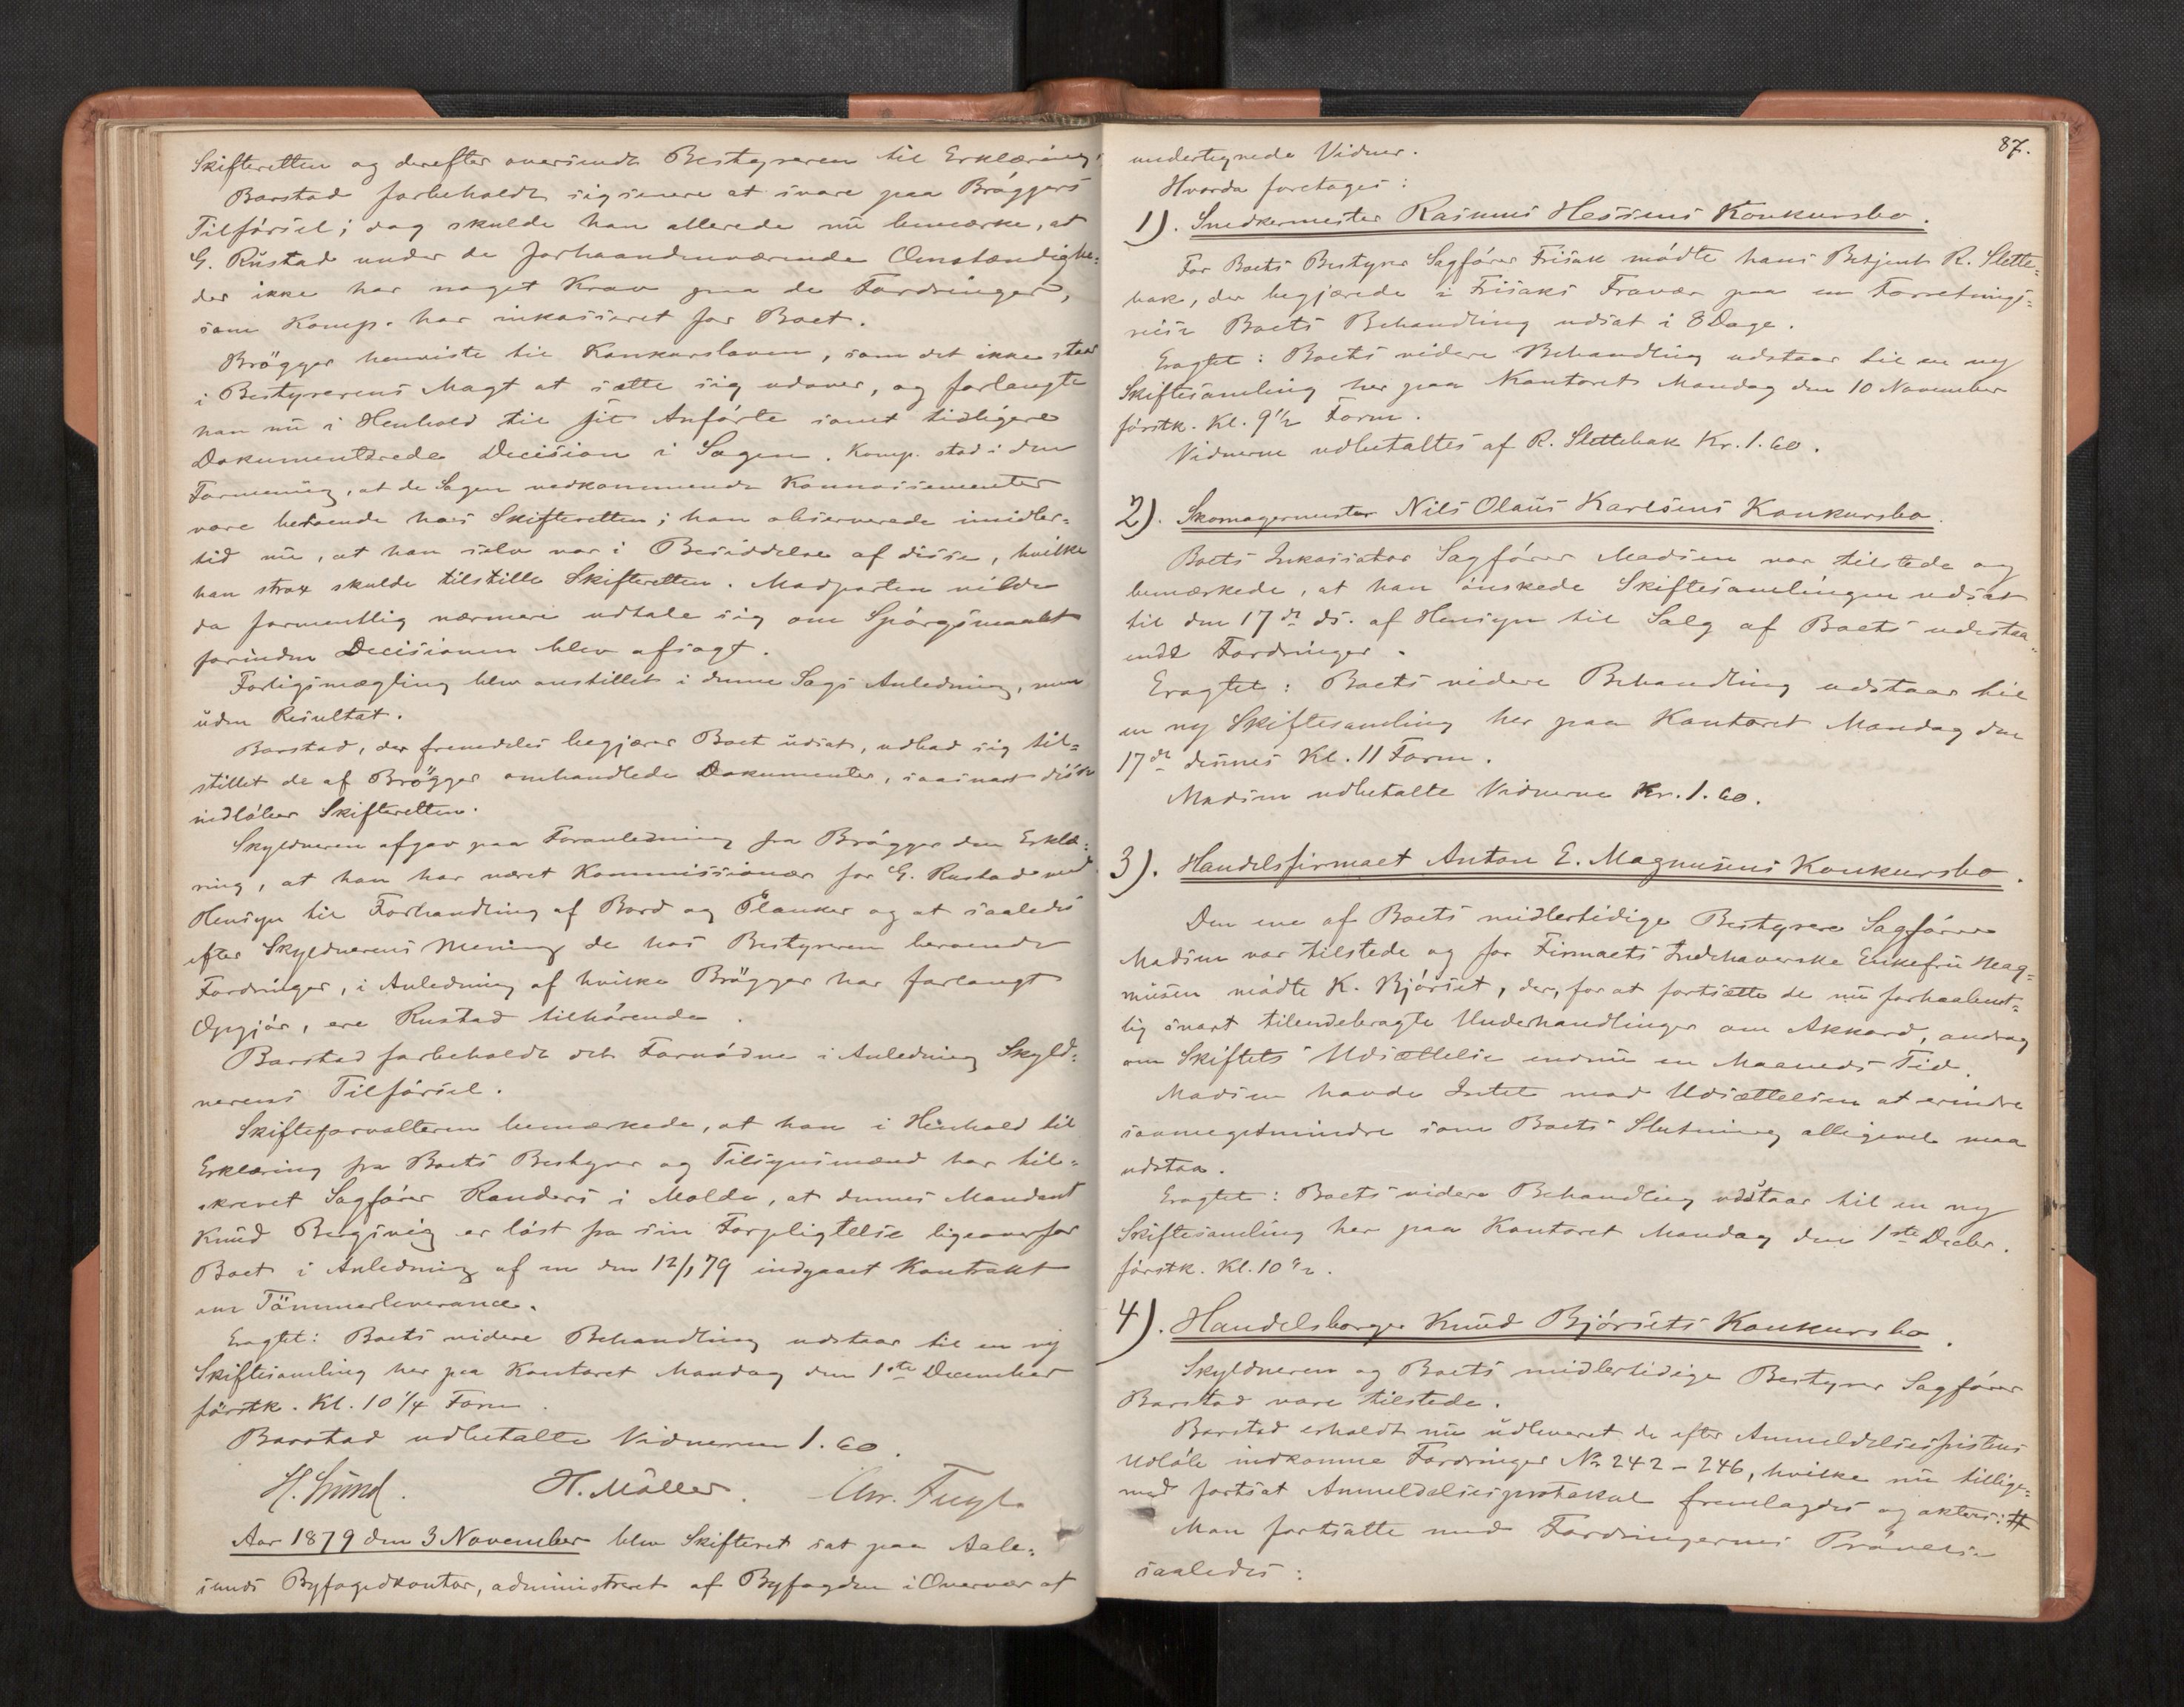 Skifteretten og derefter oversendt Bestyreren til Erklæring.
Barstad forbeholdt sig senere at svare paa Bröggers
Tilförsel; dog skulde han allerede nu bemærke, at
G. Rustad under de forhaandenværende Omstændighe-
der ikke har noget Krav paa de Fordringer,
som Komp. har inkasseret for Boet.
Brögger henviste til Konkursloven, som det ikke staar
i Bestyrerens Magt at sætte sig udover, og forlangte
han nu i Henhold til sit Anförte samt tidligere
Dokumenterede Decision i Sagen. Komp. stod i den
Formening, at de Sagen vedkommende Konnossementer
vare beroende hos Skifteretten; han observerede imidler-
tid nu, at han selv var i Besiddelse af disse, hvilke
han strax skulde tilstille Skifteretten. Modparten vilde
da formentlig nærmere udtale sig om Spörgsmaalet
forinden Decisionen blev afsagt.
Forligsmægling blev anstillet i denne Sags Anledning, men
uden Resultat.
Barstad, der fremdeles begjærer Boet udsat, udbad sig til-
stillet de af Brögger omhandlede Dokumenter, saasnart disse
indlöber Skifteretten.
Skyldneren afgav paa Foranledning fra Brögger den Erklæ-
ring, at han har været Kommissionær for G. Rustad med
Hensyn til Forhandling af Bord og Planker og at saaledes
efter Skyldnerens Mening de hos Bestyreren beroende
Fordringer, i Anledning af hvilke Brögger har forlangt
Opgjör, ere Rustad tilhörende.
Barstad forbeholdt det Fornödne i Anledning Skyld-
nerens Tilförsel.
Skifteforvalteren bemærkede, at han i Henhold til
Erklæring fra Boets Bestyrer og Tilsynsmænd har til-
skrevet Sagförer Randers i Molde, at dennes Mandant
Knud Bergsvig er löst fra sin Forpligtelse ligeoverfor
Boet i Anledning af en den 12/1 79 indgaaet Kontrakt
om Tömmerleverance.
Eragtet: Boets videre Behandling udstaar til en ny
Skiftesamling her paa Kontoret Mandag den 1ste December
förstk. Kl. 10 1/4 Form.
Barstad udbetalte Vidnerne 1.60.
H. Lund. H. Möller. Chr.
Aar 1879 den 3 November blev Skifteret sat paa Aale-
sunds Byfogedkontor, administreret af Byfogden i Overvær af
87.
undertegnede Vidner.
Hvorda foretoges:
1). Snedkermester Rasmus Hessens Konkursbo.
For Boets Bestyrer Sagförer Frisak mödte hans Betjent R. Slette-
bak, der begjærede i Frisaks Fravær paa en Forretnings-
reise Boets Behandling udsat i 8 Dage.
Eragtet: Boets videre Behandling udstaar til en ny
Skiftesamling her paa Kontoret Mandag den 10 November
förstk. Kl. 9 1/2 Form.
Vidnerne udbetaltes af R. Slettebak Kr. 1.60.
2). Skomagermester Nils Olaus Karlsens Konkursbo.
Boets Inkassator Sagförer Madsen var tilstede og
bemærkede, at han önskede Skiftesamlingen udsat
til den 17de ds. af Hensyn til Salg af Boets udestaa-
ende Fordringer.
Eragtet: Boets videre Behandling udstaar til
en ny Skiftesamling her paa Kontoret Mandag den
17de dennes Kl. 11 Form.
Madsen udbetalte Vidnerne Kr. 1.60.
3). Handelsfirmaet Anton E. Magnusens Konkursbo.
Den ene af Boets midlertidige Bestyrere Sagförer
Madsen var tilstede og for Firmaets Indehaverske Enkefru Mag-
nusen mödte K. Bjórset, der, for at fortsætte de nu forhaabent-
lig snart tilendebragte Underhandlinger om Akkord, androg
om Skiftets Udsættelse endnu en Maaneds Tid.
Madsen havde Intet mod Udsættelsen at erindre
saameget mindre som Boets Slutning alligevel maa
udstaa.
Eragtet: Boets videre Behandling udstaar til en ny
Skiftesamling her paa Kontoret Mandag den 1ste Decbr.
förstk. Kl. 10 1/2.
4). Handelsborger Knud Bjórsets Konkursbo.
Skyldneren og Boets midlertidige Bestyrer Sagförer
Barstad vare tilstede.
Barstad erholdt nu udleveret de efter Anmeldelsesfristens
Udlöb indkomne Fordringer No 242-246, hvilke nu tillige-
med fortsat Anmeldelsesprotokol fremlagdes og akteres: #
Man fortsatte med Fordringernes Prövelse
saaledes: